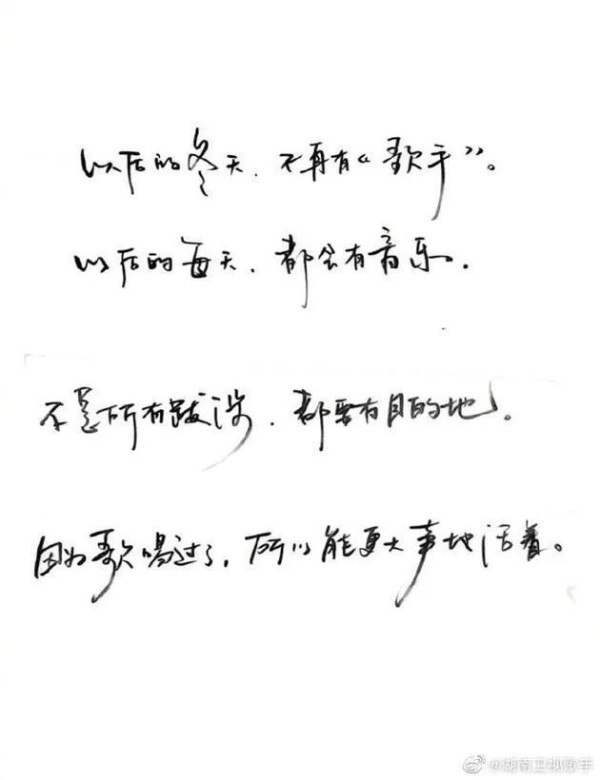 以后的冬天，不再有《歌手》。
以后的每天，都会有音乐。
不是所有跋涉，都要有目的地。
因为歌唱过了，所以能更大声地活着。
@湖南卫视歌手